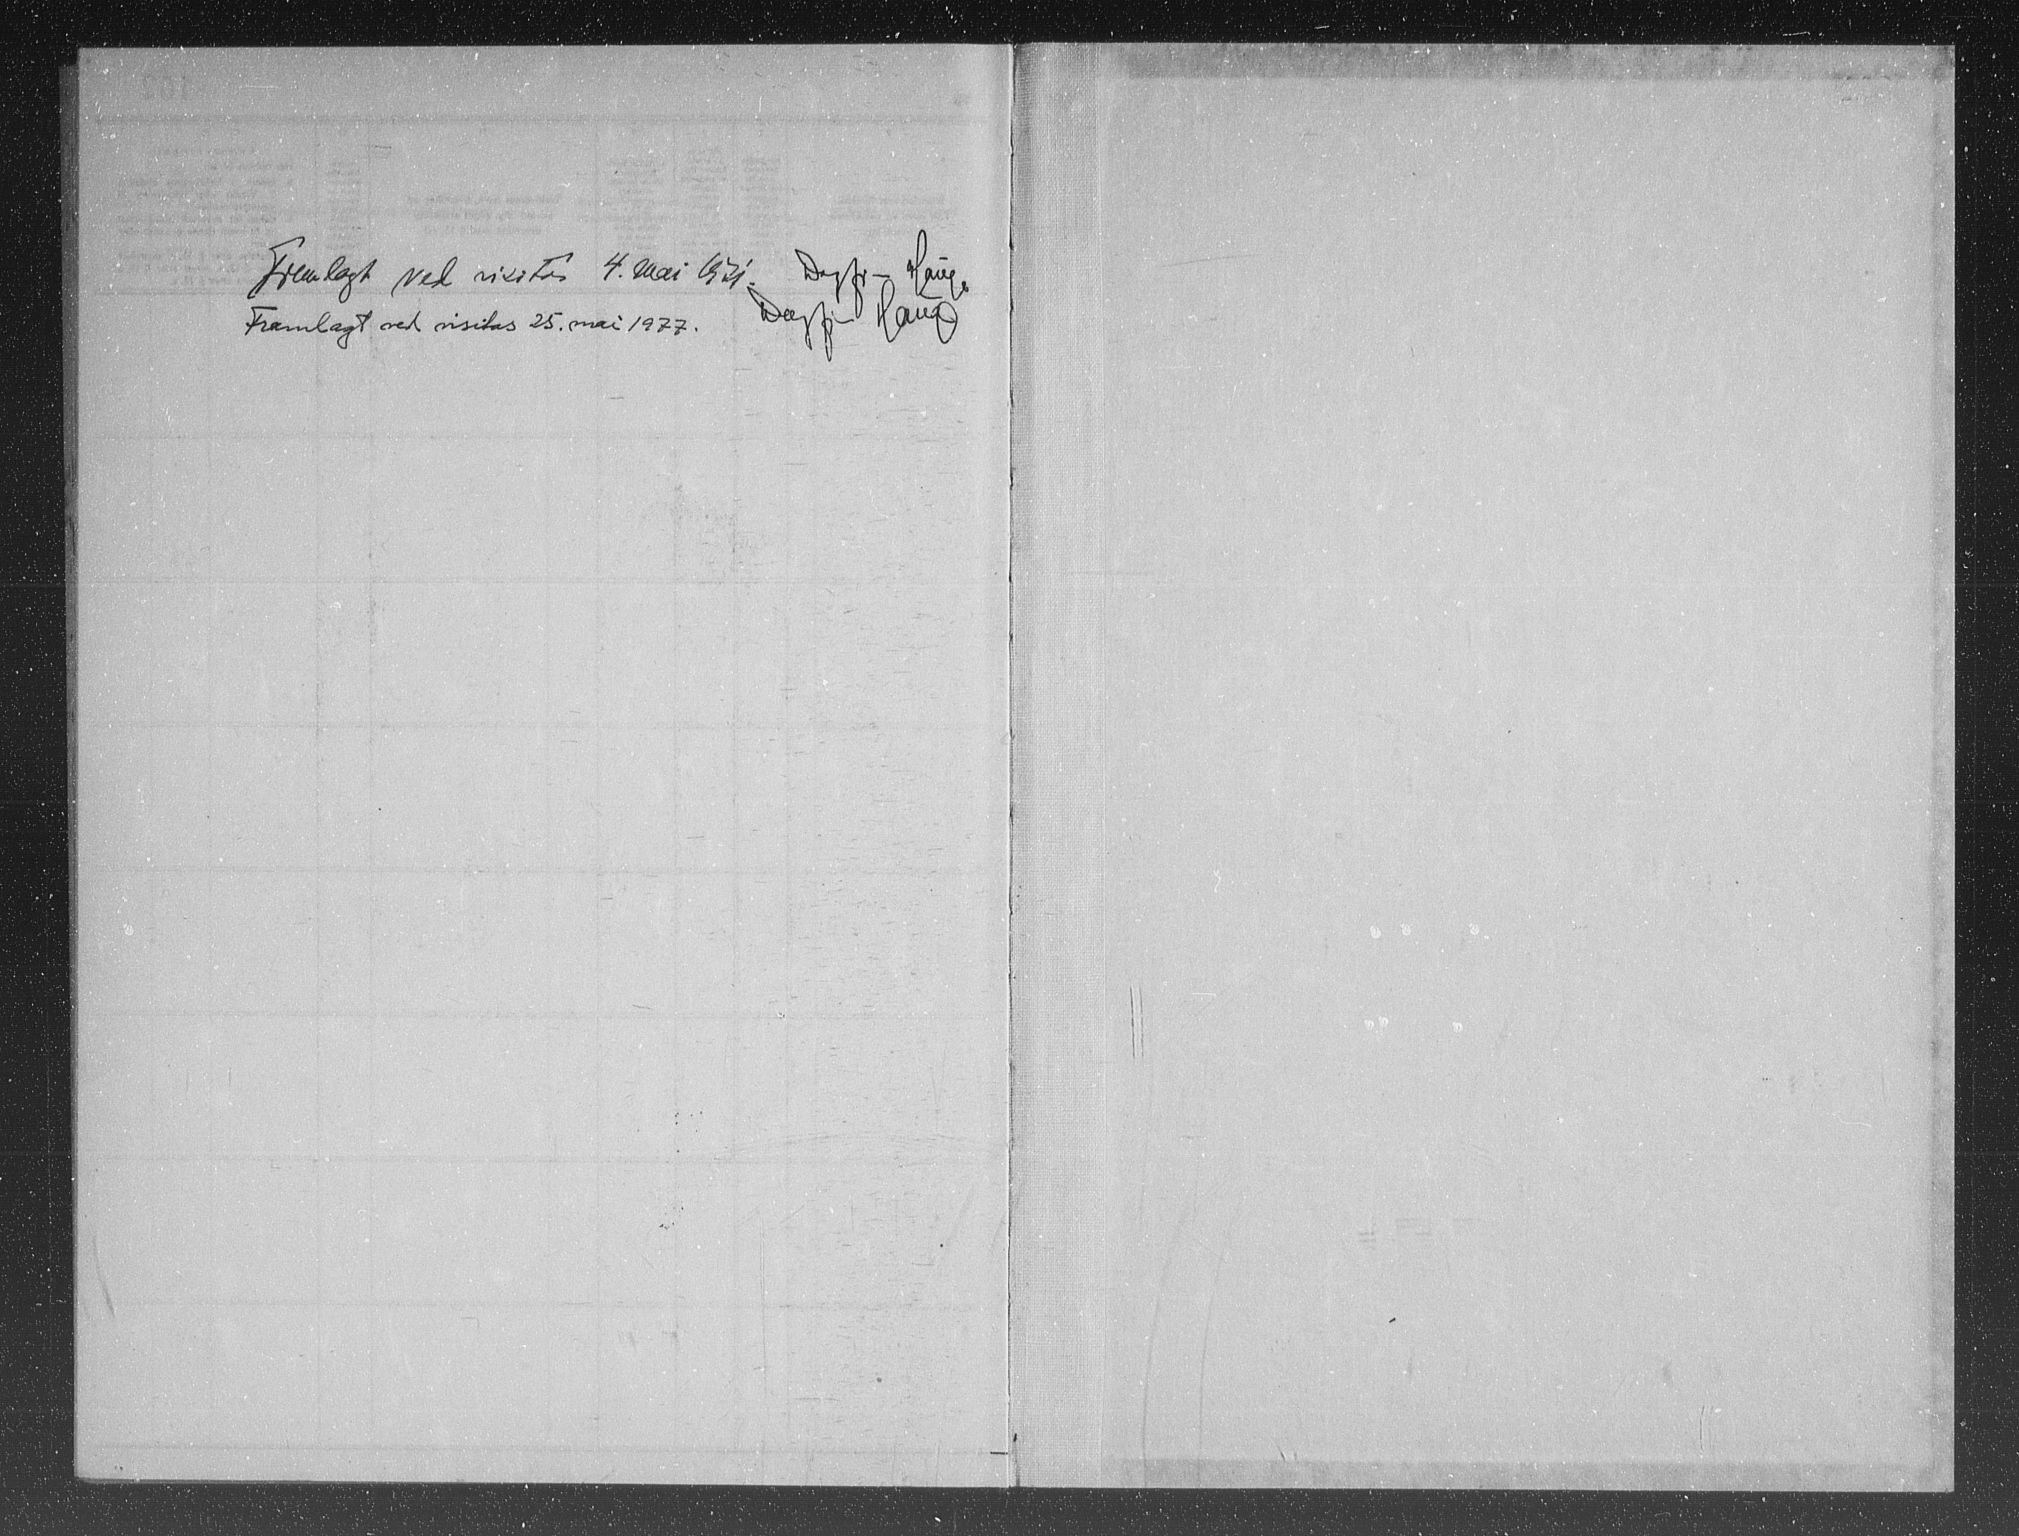 Fremlagt ved visitas 4. mai 1971. Dagfinn Hauge
Framlagt ved visitas 25. mai 1977. Dagfinn Hauge